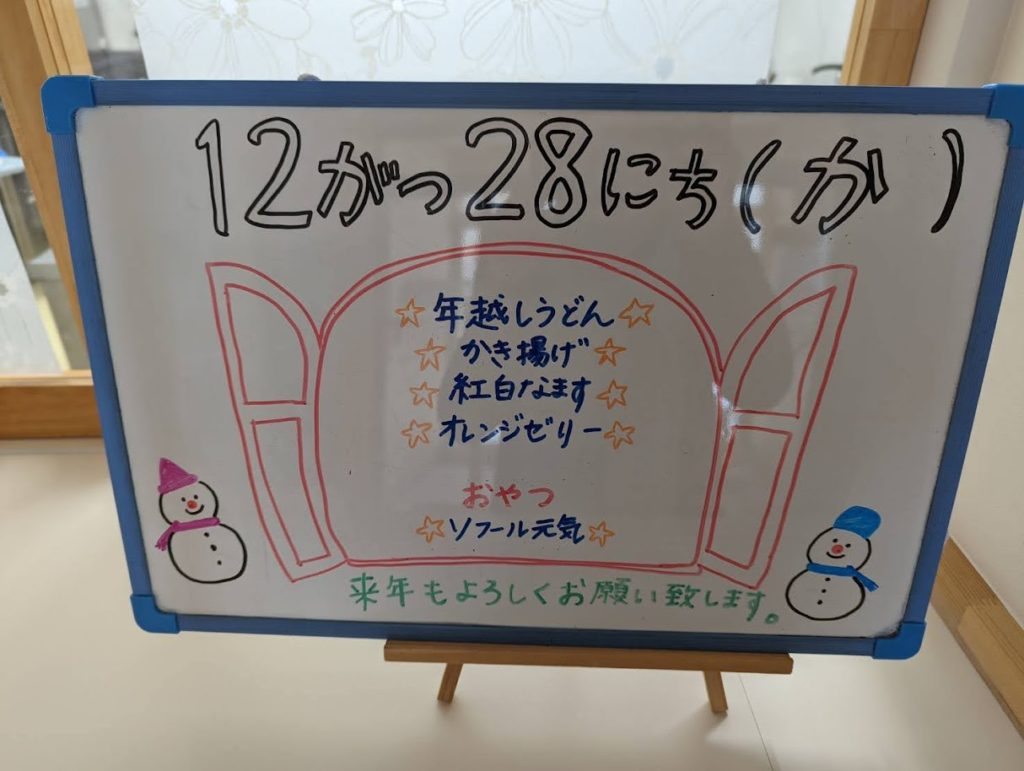 12がつ28にち(か)
☆年越しうどん☆
☆かき揚げ☆
☆紅白なます☆
☆オレンジゼリー☆
おやつ
☆ソフール元気☆
来年もよろしくお願い致します。